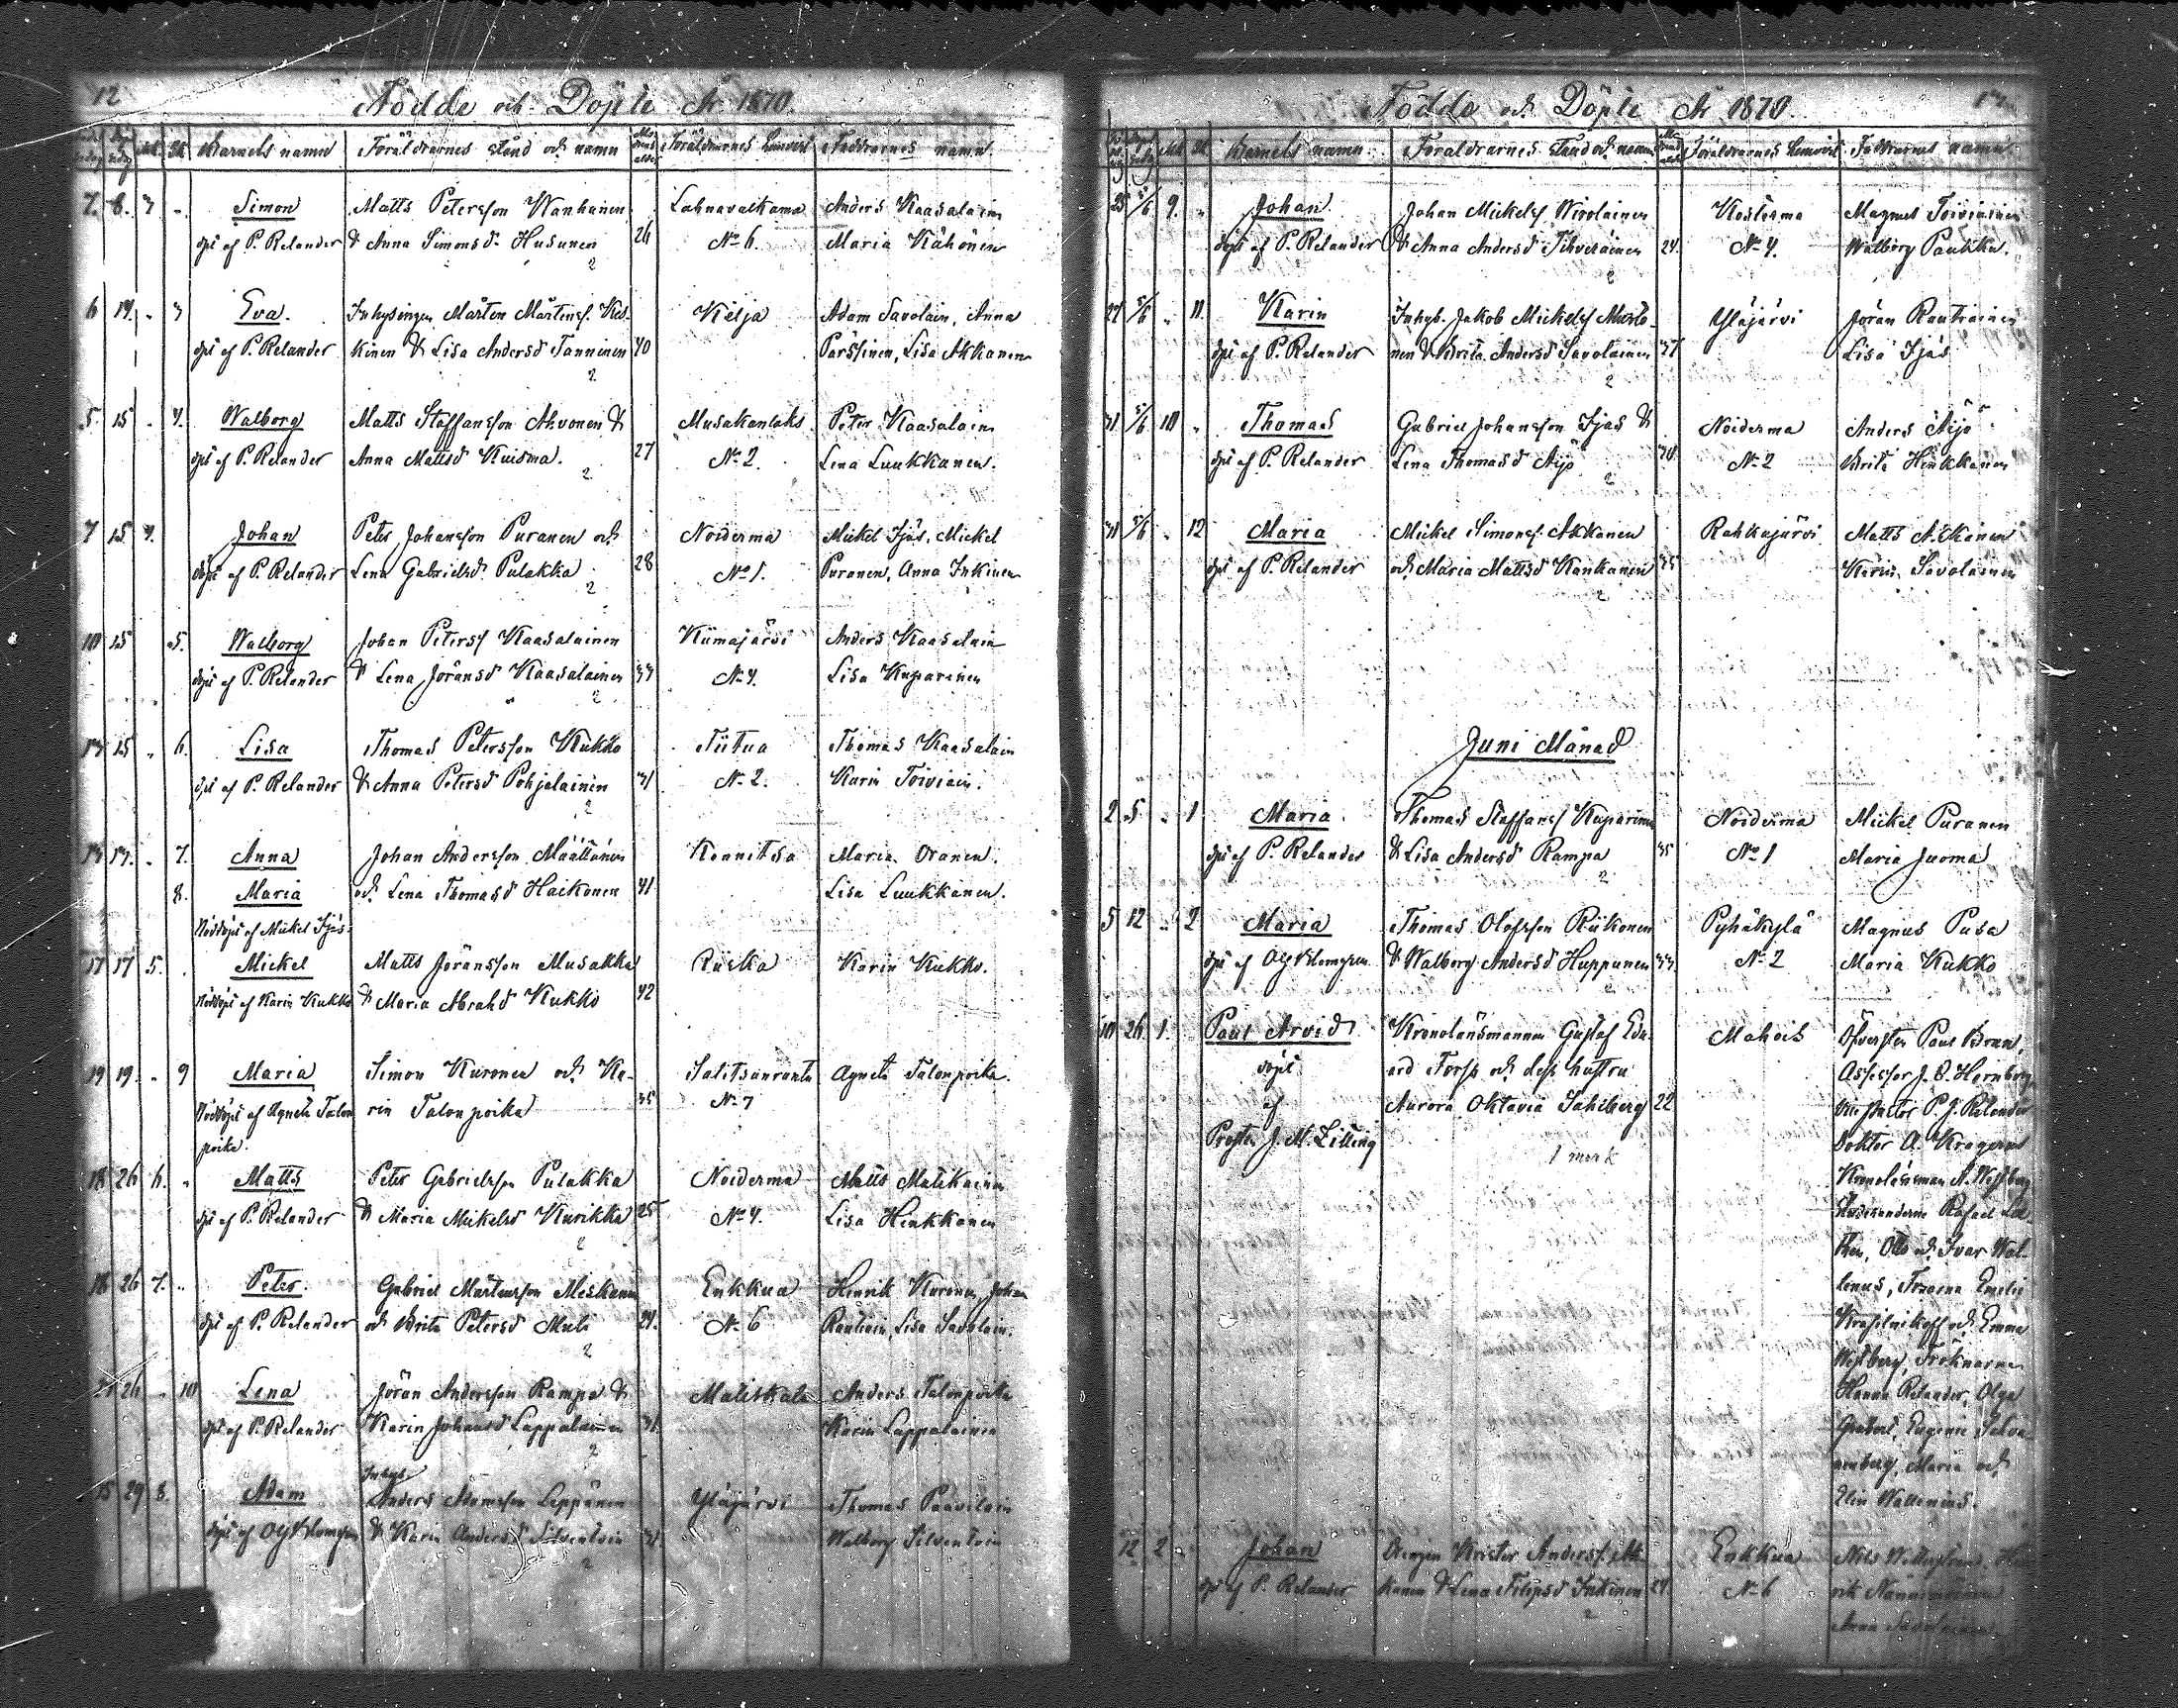 12
Födde och Döpte År 1870.
Barnets namn Föräldrarnes stånd och namn Föräldrarnes hemvist Faddrarnes namn
7. 8. 3 Simon Matts Petersson Wanhanen Lahnavalkama Anders Kaasalain
dpt af P. Relander & Anna Simonsd. Husunen 26 No 6. Maria Kähönen
2
6 14. 3 Eva. Inhysingen Mårten Mårtensf. Kes- Kelja Adam Savolain, Anna
dpt af P. Relander kinen & Lisa Andersd Tanninen 40 Parssinen, Lisa Akkanen
2
5 15 4. Walborg Matts Staffansson Ahvonen & Musakanlaks Peter Kaasalain
dpt af P. Relander Anna Mattsd Kuisma. 27 No 2. Lena Luukkanen.
2
7 15 4. Johan Peter Johansson Puranen och Noiderma Mickel Ijäs, Mickel
döpt af P. Relander Lena Gabrielsd. Pulakka 28 No 1. Puranen, Anna Inkinen
2
10 15 5. Walborg Johan Petersf Kaasalainen Kiimajärvi Anders Kaasalain
döpt af P. Relander & Lena Jöransd Kaasalainen 33 No 4. Lisa Kuparinen
2
13 15 6. Lisa Thomas Petersson Kukko Tiitua Thomas Kaasalain
dpt af P. Relander & Anna Petersd Pohjalainen 31 No 2. Karin Toiviain.
2
13 17. 7. Anna Johan Andersson Määttänen Konnitsa Maria Oranen.
8. Maria och Lena Thomasd Haikonen 41 Lisa Luukkanen.
Nöddöpt af Mickel Ijäs
17 17 5. Mickel Matts Jöransson Musakka Riiska Karin Kukko.
Nöddöpt af Karin Kukko & Maria Abrahd Kukko 42
19 19 9 Maria Simon Kuronen och Ka- Salitsanranta Agneta Talonpoika.
Nöddöpt af Agneta Talon rin Talonpoika 35 No 7
poika.
18 26 6. Matts Peter Gabrielsson Pulakka Noiderma Matts Matikainen
dpt af P. Relander & Maria Mickelsd Kurikka 25 No 4. Lisa Hinkkanen
2
18 26 7. Peter. Gabriel Mårtensson Meskanen Enkkua Henrik Kuronen, Johan
dpt af P. Relander och Brita Petersd Muli 24. No 6 Rautiain, Lisa Savolain.
2
26 10 Lena Jöran Andersson Rampa & Matiskala Anders Talonpoika
dpt af P. Relander Karin Johansd Lappalainen 31. Karin Lappalainen
2
Inhys
15 29 8. Adam Anders Adamsson Leppänen Yläjärvi Thomas Paavilain
döpt af Blomgren & Karin Andersd Silventoin 31. Walborg Silventoin
2
Födde och Döpte År 1870.
Barnets namn Föräldrarnes stånd och namn Föräldrarnes hemvist Faddrarnes namn
25 5/6 9. Johan Johan Mickelsf Nirolainen Kosterma Magnus Toiviainen
döpt af P. Relander & Anna Andersd Tihveräinen 24. No 4. Walborg Paukka.
2
27 5/6 11. Karin Inhys. Jakob Mickelsf Muсto- Yläjärvi Jöran Rautiainen
döpt af P. Relander nen & Brita Andersd Savolainen 37 Lisa Ijäs
2
31 5/6 10 Thomas Gabriel Johansson Ijäs & Noiderma Anders Äijö
dpt af P. Relander Lena Thomasd Äijö 30 No 2 Brita Hinkkanen
2
31 5/6 12 Maria Mickel Simonsf. Akkanen Rahkajärvi Matts Akkanen
dpt af P. Relander och Maria Mattsd Kankanen 35 Karin Savolainen
2
Juni Månad
2 5 1 Maria Thomas Staffansf Kuparinen Noiderma Mickel Puranen
dpt af P. Relander & Lisa Andersd Rampa 35 No 1 Maria Juoma
2
5 12 2 Maria Thomas Olofsson Riikonen Pyhäkylä Magnus Pusa
dpt af Blomgren & Walborg Andersd Huppunen 33 No 2 Maria Kukko
2
10 26 1. Paul Arvid Kronolänsmannen Gustaf Edu- Mahois Öfversten Paul Bron,
döpt ard Forss och dess hustru Assessor J. O. Hornborg,
af Aurora Oktavia Sahlberg 22 P. J. Relander
Prosten J. M. Zitting Doktor A. Krogerus
1 mark Kronolänsman A. Westberg
Studeranderne Rafael Lil-
then, Otto och Ivar Wal-
lenius, Fruarna Emelie
Krasilnikoff och Emma
Westberg, Fröknarna
Hanna Relander, Olga
Eugenie
Maria och
Elin Wallenius.
12 2 Johan Drengen Krister Andersf. Ak- Enkkua Nils
dpt af P. Relander kanen & Lena Filipsd Inkinen 24. No 6
2 Anna Savolainen